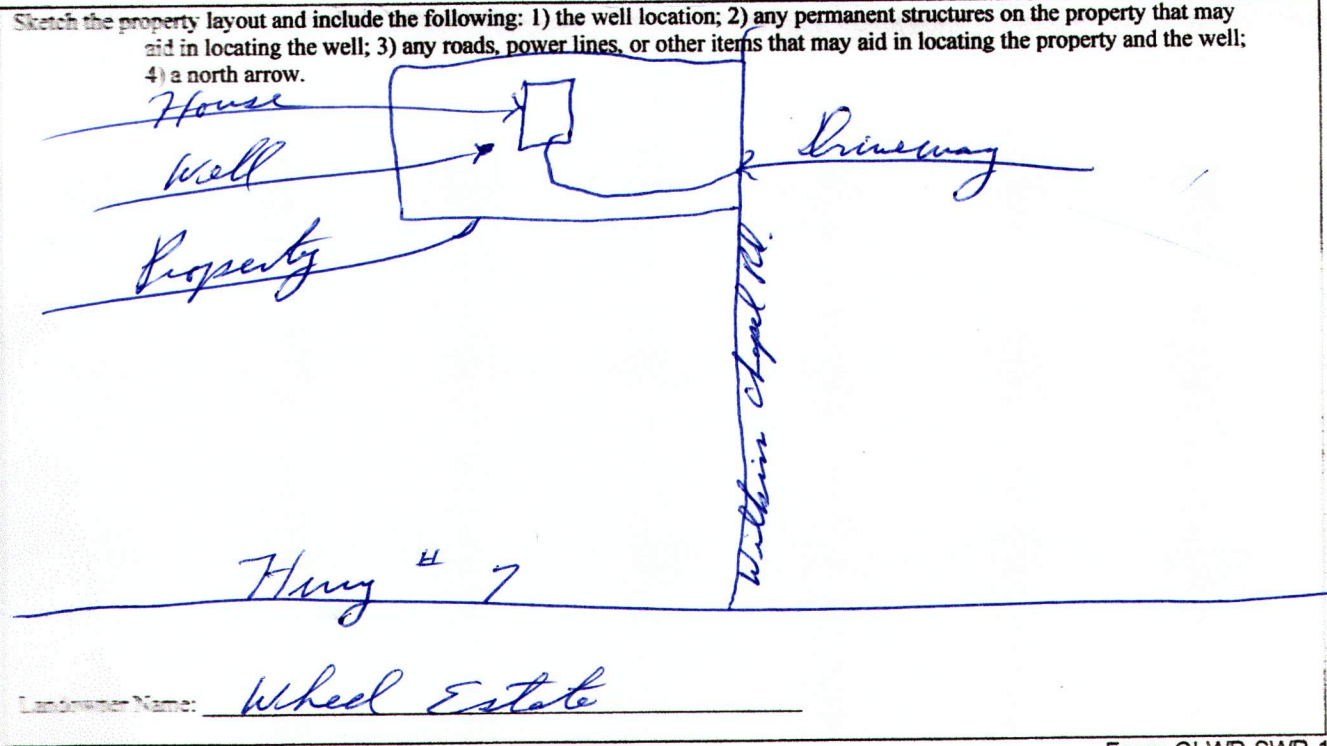 Sketch the property layout and include the following: 1) the well location; 2) any permanent structures on the property that may
aid in locating the well; 3) any roads, power lines, or other items that may aid in locating the property and the well;
4) a north arrow.
House
Well
Driveway
Property
Wilkin Chapel Rd.
Hwy # 7
Landowner Name: Wheel Estate